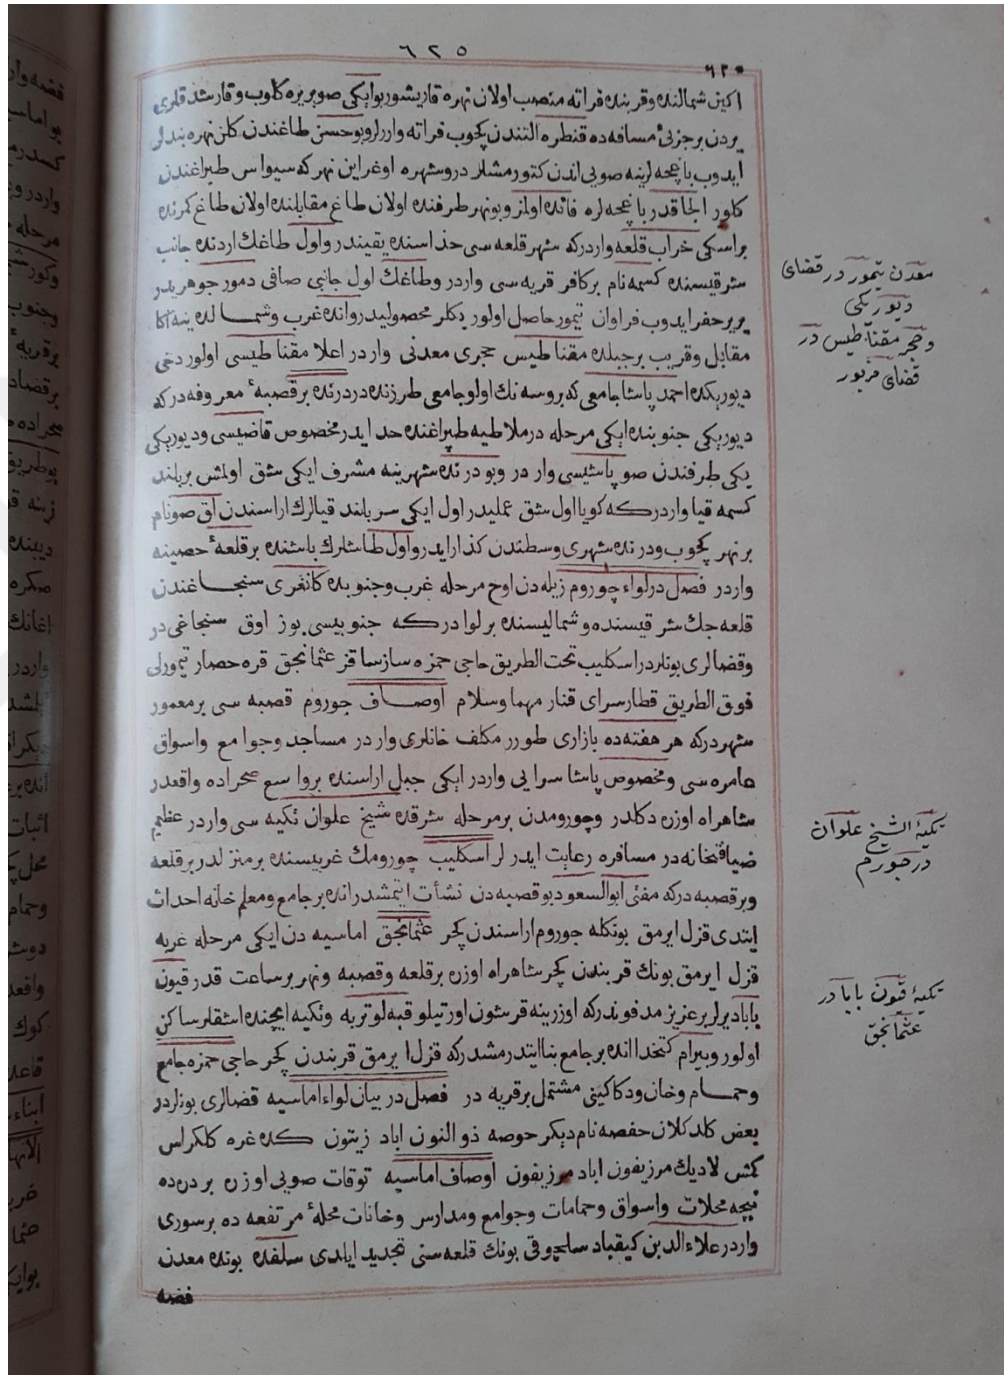 ٦٢٥
٦٢٠
اكين شمالنده وقربنده فراته منصب اولان نهره قاريشور بو ايكى صو بربره كلوب وقارشد قلرى
يردن بر جزئى مسافه ده قنطره التندن كچوب فراته واررلر و بو حسن طاغندن كلن نهره بندلر
ايدوب باغچه لرينه صويى اندن كتورمشلر در و شهره اوغراين نهر كه سيواس طپراغندن
كلور الجاقدر باغچه لره فائده اولمز و بو نهر طرفنده اولان طاغ مقابلنده اولان طاغ كمرنده
بر اسكى خراب قلعه واردر كه شهر قلعه سى حذاسنده يقيندر و اول طاغك اردنده جانب
شرقيسنده كسمه نام بر كافر قريه سى واردر و طاغك اول جانبى صافى دمور جوهريدر
يرير حفر ايدوب فراوان تيمور حاصل اولور دكلر محصوليدر و انده غرب و شمالده ينه اكا
مقابل و قريب بر جبلده مقناطيس حجرى معدنى واردر اعلا مقناطيسى اولور دخى
ديوريكده احمد پاشا جامعى كه بروسه نك اولو جامعى طرزنده در درنده بر قصبهٔ معروفه در كه
ديوريكى جنوبنده ايكى مرحله در ملاطيه طپراغنده حد ايدر مخصوص قاضيسى و ديوريكى
بكى طرفندن صوباشيسى واردر و بو درنده شهرينه مشرف ايكى شق اولمش بر بلند
كسمه قيا واردر كه كويا اول شق عمليدر اول ايكى سر بلند قيالرك اراسندن اق صو نام
بر نهر كچوب و درنده شهرى وسطندن كذار ايدر و اول طاشلرك باشنده بر قلعهٔ حصينه
واردر فصل در لواء چوروم زيله دن اوچ مرحله غرب و جنوبده كانغرى سنجاغندن
قلعه جك شرقيسنده و شماليسنده بر لوا در كه جنوبيسى بوز اوق سنجاغى در
و قضالرى بونلردر اسكليب تحت الطريق حاجى حمزه ساز ساقز عثمانجق قره حصار تيمورلى
فوق الطريق قطار سراى قنار مهما و سلام اوصاف چوروم قصبه سى بر معمور
شهردر كه هر هفته ده بازارى طورر مكلف خانلرى واردر مساجد و جوامع و اسواق
عامره سى و مخصوص پاشا سرايى واردر ايكى جبل اراسنده بر واسع صحراده واقعدر
شاهراه اوزره دكلدر و چورومدن بر مرحله شرقده شيخ علوان تكيه سى واردر عظيم
ضيافتخانه در مسافره رعايت ايدرلر اسكليب چورومك غربيسنده بر منزلدر بر قلعه
و بر قصبه در كه مفتى ابو السعود بو قصبه دن نشأت ايتمشدر انده بر جامع و معلم خانه احداث
ايتدى قزل ايرمق بونكله چوروم اراسندن كچر عثمانجق اماسيه دن ايكى مرحله غربه
قزل ايرمق بونك قربندن كچر شاهراه اوزره بر قلعه و قصبه و نهر بر ساعت قدر قيون
بابا ديرلر بر عزيز مدفوندر كه اوزرينه قرشون اورتيلو قبه لو تربه و تكيه ايچنده اشقلر ساكن
اولور و بيرام كتخدا انده بر جامع بنا ايتدرمشدر كه قزل ايرمق قربندن كچر حاجى حمزه جامع
و حمام و خان و دكاكينى مشتمل بر قريه در فصل در بيان لواء اماسيه قضالرى بونلردر
بعض كلدكلان حفصه نام ديكر حوصه ذو النون اباد زيتون كده غره كلكراس
كمش لاديك مرزيفون اباد مرزيفون اوصاف اماسيه توقات صويى اوزره بر دره ده
نيچه محلات و اسواق و حمامات و جوامع و مدارس و خانات محلهٔ مرتفعه ده بر سورى
واردر علاء الدين كيقباد سلجوقى بونك قلعه سنى تجديد ايلدى سلفده بونده معدن
فضه
معدن تيمور در قضاى
ديوريكى
و حجر مقناطيس در
قضاى مزبور
تكيهٔ الشيخ علوان
در چورم
تكيهٔ قيون بابا در
عثمانجق